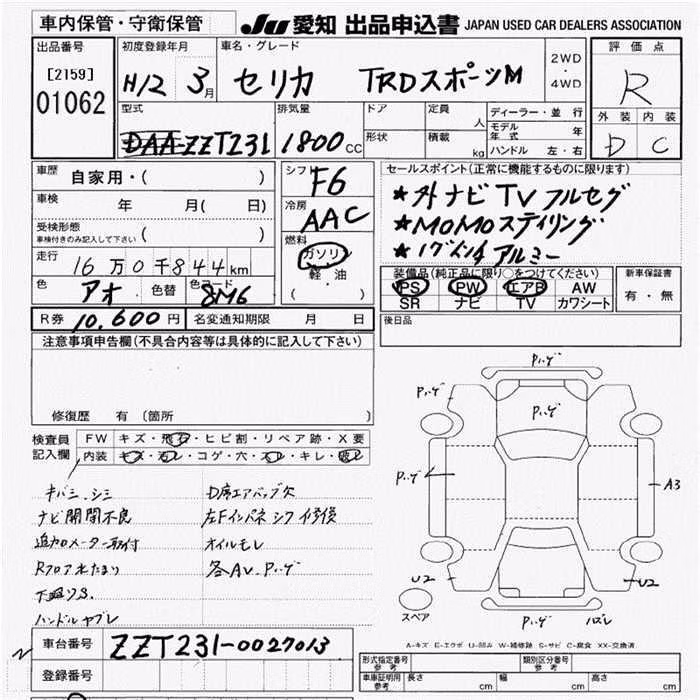 車内保管・守衛保管
JU 愛知 出品申込書 JAPAN USED CAR DEALERS ASSOCIATION
出品番号
[2159]
01062
初度登録年月
H12 3月
車名・グレード
セリカ TRDスポーツM
2WD
・
4WD
評価点
R
外装 内装
D C
型式
DAA-ZZT231
排気量
1800cc
ドア
定員 人
形状
積載 kg
ディーラー・並行
モデル年式 年
ハンドル 左・右
車歴
自家用・( )
車検 年 月( 日)
受検形態
車検付きのみ記入して下さい ( )
走行
16万0千844km
色
アオ
色替
色コード
8M6
シフト
F6
冷房
AAC
燃料
ガソリン
軽・油
( )
セールスポイント(正常に機能するものに限ります)
★外ナビTVフルセグ
★MOMOステイリング
アルミー
装備品(純正品に限り○をつけてください)
PS PW エアB AW
SR ナビ TV カワシート
新車保証書
有・無
R券 10,600円 名変通知期限 月 日
後日品
注意事項申告欄(不具合内容等は具体的に記入して下さい)
修復歴 有 〔箇所
検査員
記入欄
FW キズ・飛石・ヒビ割・リペア跡・X要
内装 キズ・汚レ・コゲ・穴・スレ・キレ・破レ
キバミ.シミ
ナビ開閉不良
追加メーター取付
Rフロア水たまり
下廻りS.
ハンドルヤブレ
D席エアバッグ欠
左Fインパネ シワ 修復
オイルモレ
各AV.Pハゲ
Pハゲ
Pハゲ
Pハゲ
Pハゲ
A3
U2
U2
Pハゲ
ハズレ
スペア
A-キズ E-エクボ U-凹み W-補修跡 S-サビ C-腐食 XX-交換済
車台番号 ZZT231-0027013
登録番号
形式指定番号
参考
類別区分番号
参考
車車証明用
参考
長さ cm
幅 cm
高さ cm